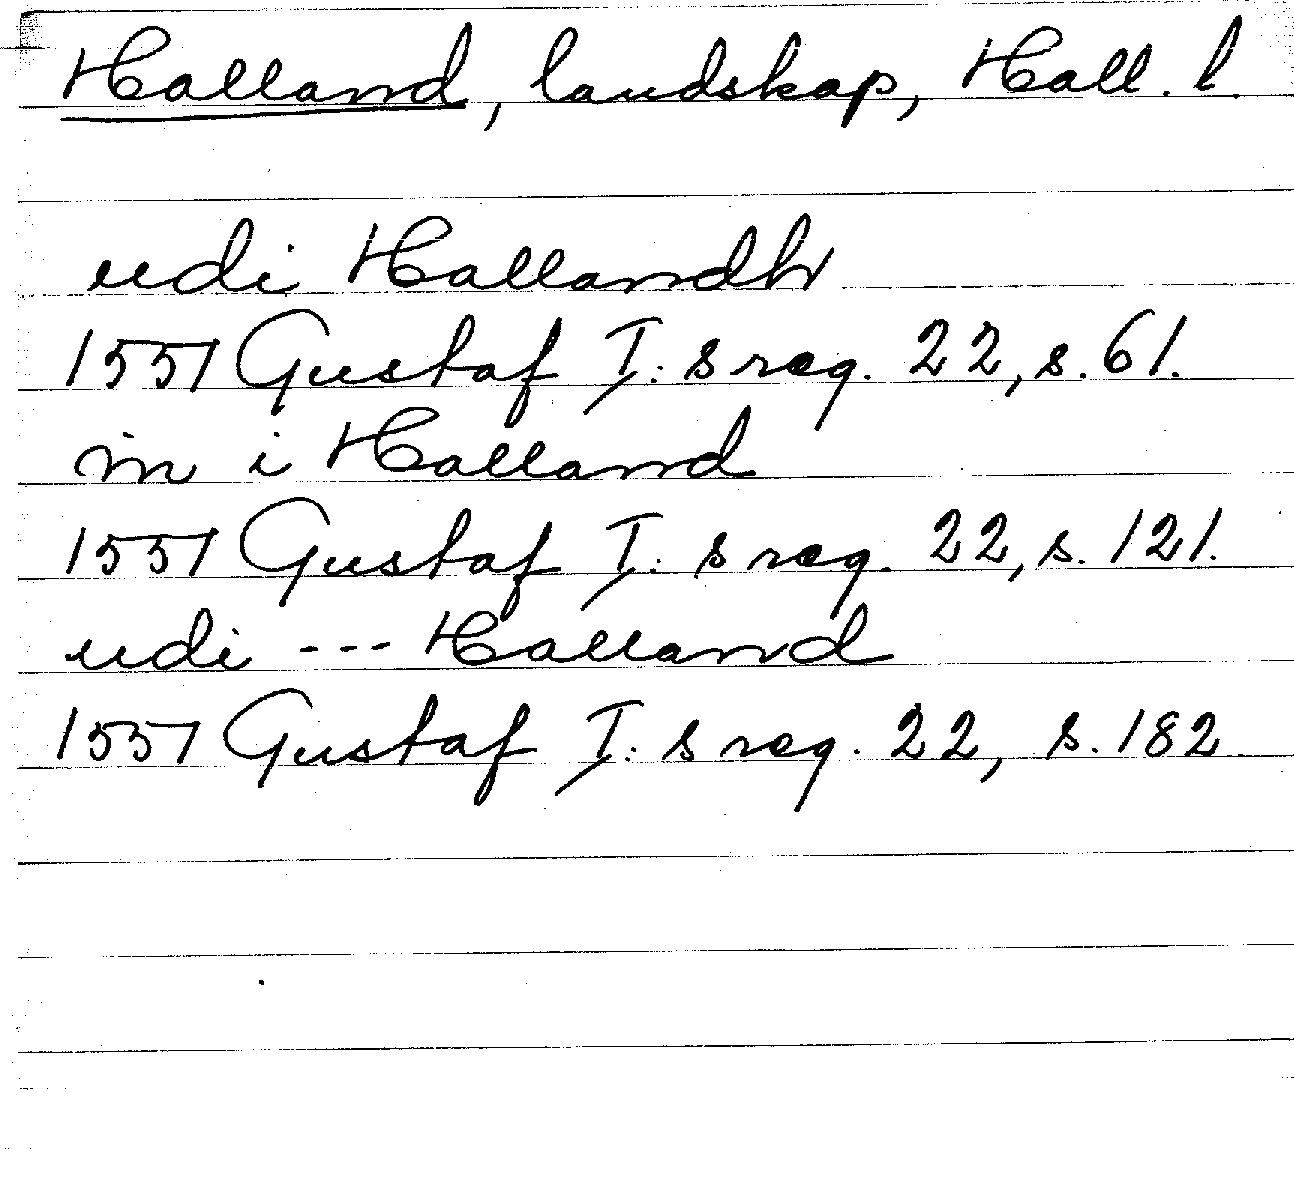 Halland, landskap, Hall. l.
udi Hallandh
1551 Gustaf I:s reg. 22, s. 61.
in i Halland
1551 Gustaf I:s reg. 22, s. 121.
udi --- Halland
1551 Gustaf I:s reg. 22, s. 182